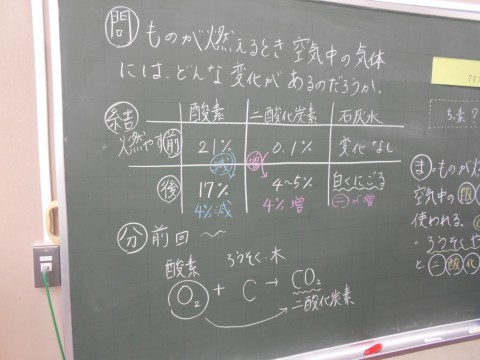 問 ものが燃えるとき 空気中の気体
には、どんな変化があるのだろうか。
結 酸素 二酸化炭素 石灰水
燃やす前 21% 0.1% 変化なし
減 増
後 17% 4~5% 白くにごる
4%減 4%増 二が増
分 前回
酸素 ろうそく・木
O₂ + C → CO₂
二酸化炭素
ま。ものが燃
空気中の酸
使われる。
・ろうそくた
と二酸化